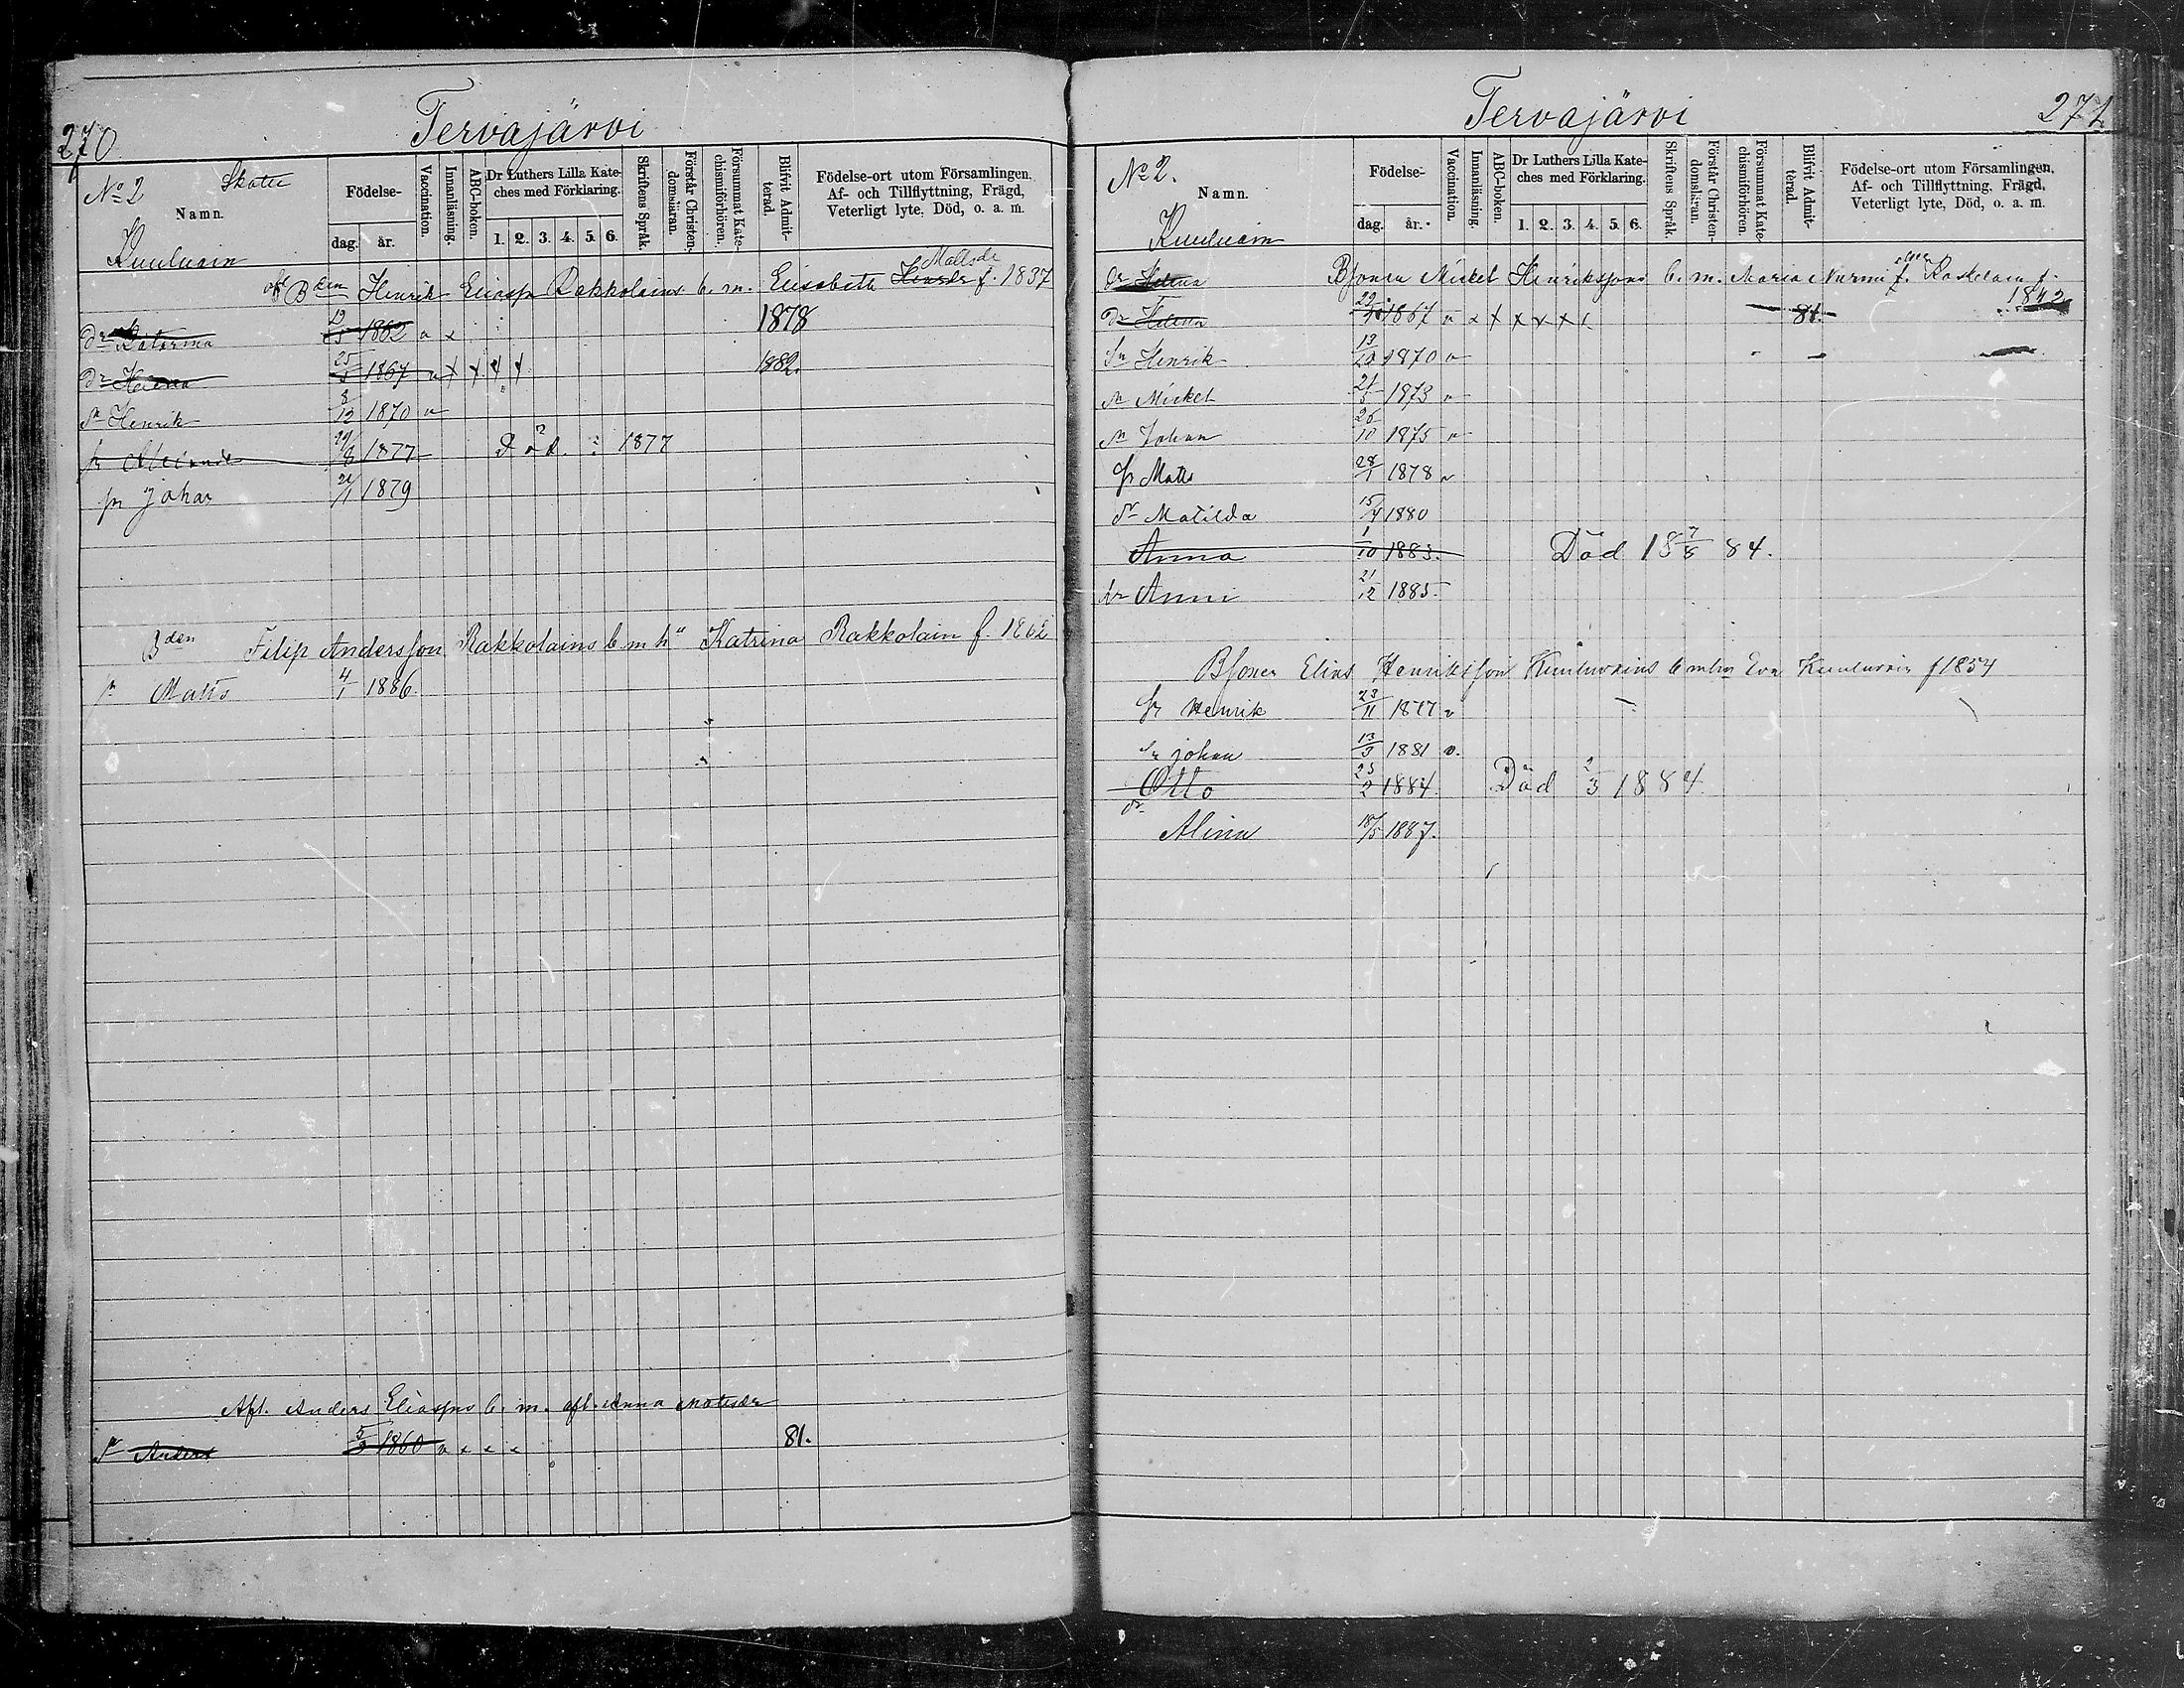 270
Tervajärvi
No 2 Skatte
Namn.
Födelse-
dag. år.
Vaccination.
Innanläsning.
ABC-boken.
Dr Luthers Lilla Kate-
ches med Förklaring.
1. 2. 3. 4. 5. 6.
Skriftens Språk.
Förstår Christen-
domsläran.
Försummat Kate-
chismiförhören.
Blifvit Admit-
terad.
Födelse-ort utom Församlingen.
Af- och Tillflyttning, Frägd,
Veterligt lyte, Död, o. a. m.
Kuuluain
Mattsdr
Bden Henrik Eliass Rakkolains b. m. Elisabeth f. 1837
Dr Katarina 19/5 1862 v x 1878
Dr Helena 25/5 1867 v x x x x 1882.
Sn Henrik 8/12 1870 v
1877 Död 1877
sn Johan 21/1 1879
Bden Filip Andersson Rakkolains b m h Katrina Rakkolain f. 1862
sn Matts 4/1 1886
Afl. Anders Eliasson b. m. afl. Anna Matsdr
Sn Anders 5/3 1860 v x x x 81.
Tervajärvi
271
No 2.
Namn.
Födelse-
dag. år.
Vaccination.
Innanläsning.
ABC-boken.
Dr Luthers Lilla Kate-
ches med Förklaring.
1. 2. 3. 4. 5. 6.
Skriftens Språk.
Förstår Christen-
domsläran.
Försummat Kate-
chismiförhören.
Blifvit Admit-
terad.
Födelse-ort utom Församlingen,
Af- och Tillflyttning, Frägd,
Veterligt lyte, Död, o. a. m.
Kuuluain
Dr Helena Bsonen Mickel Henrikssons b. m. Maria Nurmi f.
1842
Dr Helena 1867 v x x x x x x 81.
Sn Henrik 13/10 1870 v
Sn Mickel 21/5 1873 v
Sn Johan 26/10 1875 v
Sn Matts 28/1 1878 v
Dr Matilda 15/4 1880
Anna 1/10 1883. Död 18 7/5 84.
dr Anni 21/12 1885.
Bsonen Elias Henriksson Kuuluvains b mhu Eva Kuuluvain f 1854
Sn Henrik 23/11 1877 v
Sn Johan 13/3 1881 v.
Otto 25/2 1884. Död 2/3 1884
dr
Alina 18/5 1887.